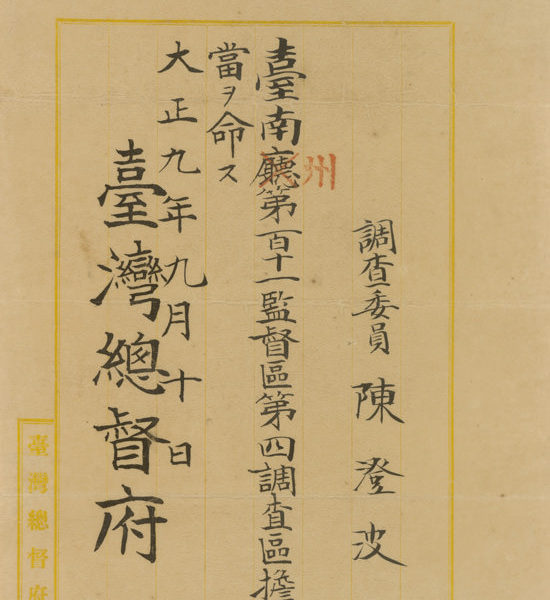 調查委員 陳澄波
臺南廳州第百十一監督區第四調查區擔
當ヲ命ス
大正九年九月十日
臺灣總督府
臺灣總督府